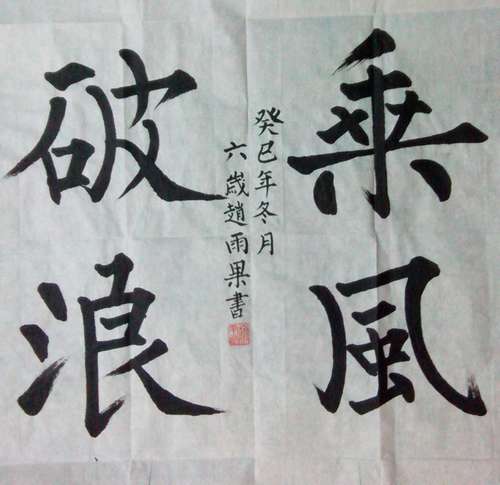 乘風
破浪
癸巳年冬月
六歲趙雨果書